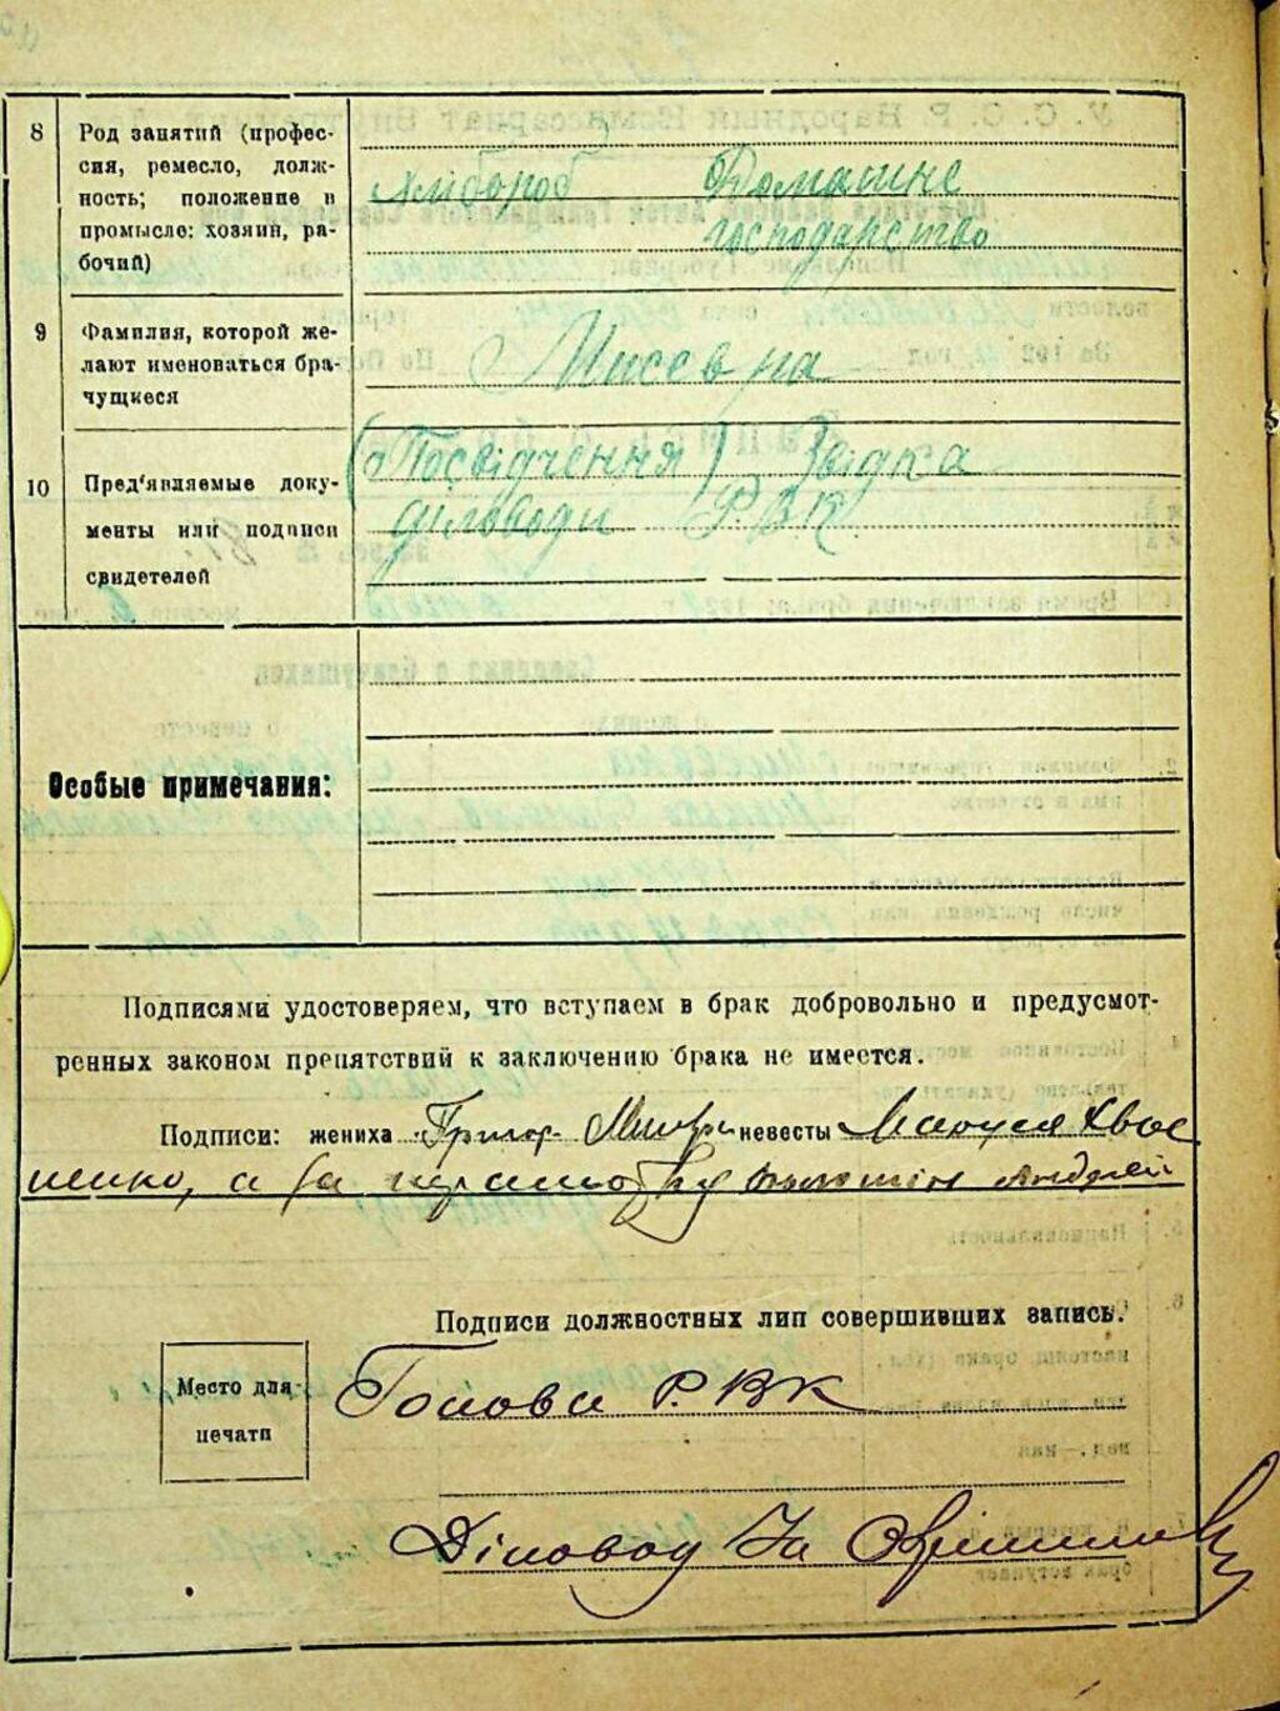 8 Род занятий (профес-
сия, ремесло, долж-
ность; положение в
промысле: хозяин, ра-
бочий)
Хлібороб Домашнє
господарство
9 Фамилия, которой же-
лают именоваться бра-
чущиеся
Мисевра
10 Пред'являемые доку-
менты или подписи
свидетелей
(Посвідчення) Звідка
діловода Р.В.К.
Особые примечания:
Подписями удостоверяем, что вступаем в брак добровольно и предусмот-
ренных законом препятствий к заключению брака не имеется.
Подписи: жениха Григор невесты
а за
Подписи должностных лиц совершивших запись.
Место для
печати
Голова Р.ВК
Діловод За